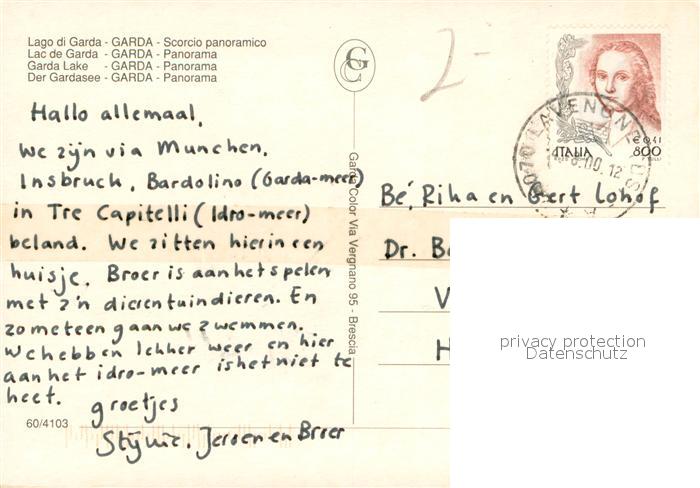 Lago di Garda - GARDA - Scorcio panoramico
Lac de Garda - GARDA - Panorama
Garda Lake - GARDA - Panorama
Der Gardasee - GARDA - Panorama
Hallo allemaal,
We zijn via Munchen,
Insbruck, Bardolino (Garda-meer)
in Tre Capitelli (Idro-meer)
beland. We zitten hier in een
huisje. Broer is aan het spelen
met z'n dierentuindieren. En
zometeen gaan we zwemmen.
We hebben lekker weer en hier
aan het idro-meer is het niet te
heet.
groetjes
Jeroen en Broer
60/4103
GC
Garda Color Via Vergnano 95 - Brescia
2-
LAVENONE
ITALIA
€ 0,41
800
Bé, Rika en Gert Lohof
Dr. B
V
H
privacy protection
Datenschutz